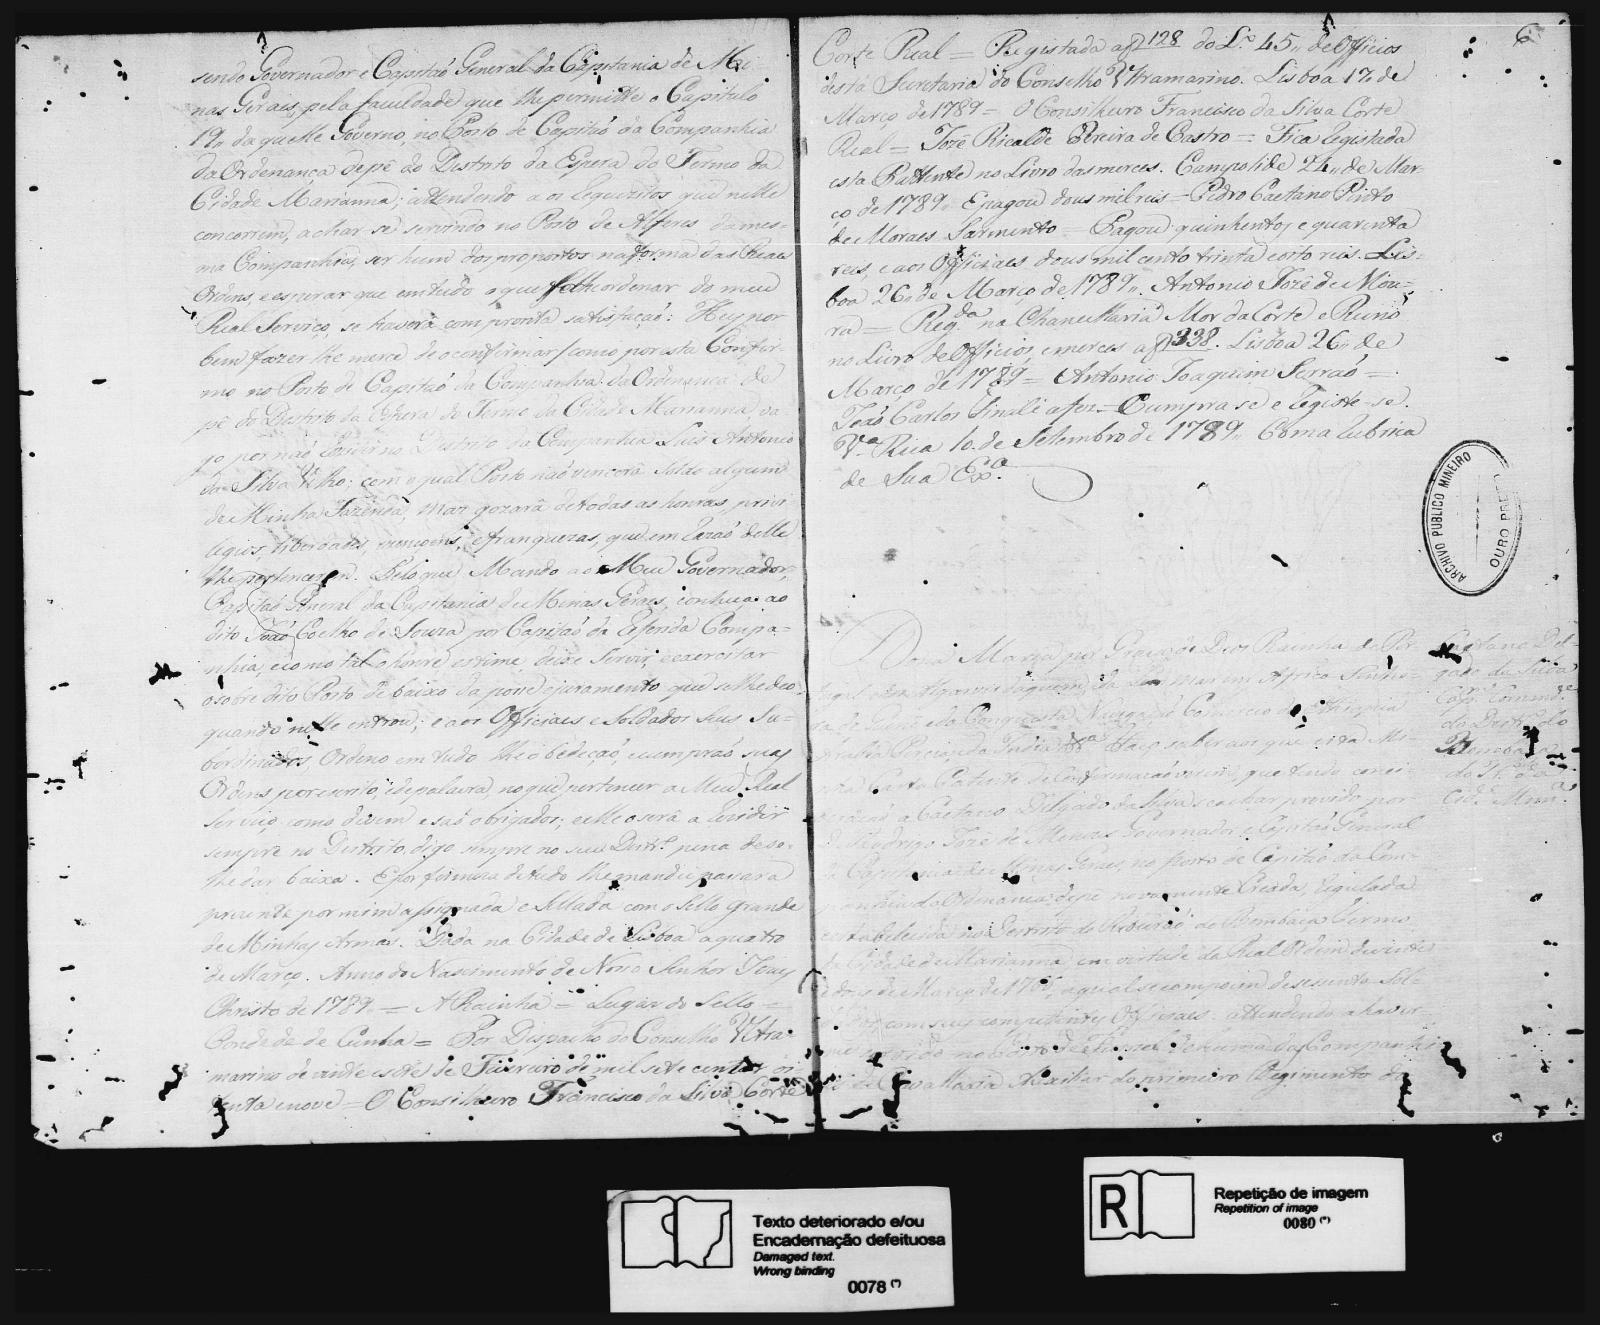 sendo Governador e Capitaõ General da Capitania de Mi-
nas Geraes, pela faculdade que lhe permitte o Capitulo
19 daquelle Governo, no Posto de Capitaõ da Companhia
da Ordenança de pé do Districto da Espera do Termo da
Cidade Marianna; attendendo a os requezitos que nelle
concorrem, achar se servindo no Posto de Alferes da mes-
ma Companhia, ser hum dos propostos na forma das Reaes
Ordens, e esperar que em tudo o que lhe ordenar do meu
Real Serviço, se haverá com pronta satisfaçaõ: Hey por
bem fazer lhe merce de o confirmar como por esta Confir-
mo no Posto de Capitaõ da Companhia da Ordenança de
pé do Districto da Espera do Termo da Cidade Marianna, va-
go por naõ rezidir no Districto da Companhia Luis Antonio
da Silva Velho; com o qual Posto naõ vencerá Soldo algum
de Minha Fazenda, mas gozará de todas as honras, privi
legios, liberdades, izençoens, e franquezas, que em razaõ delle
lhe pertencerem. Pelo que Mando ao Meu Governador,
Capitaõ General da Capitania de Minas Geraes, conheça ao
dito Joaõ Coelho de Souza por Capitaõ da referida Compa-
nhia, e como tal o honre estime, deixe servir, e exercitar
o sobre dito Posto de baixo da posse e juramento que se lhe deo
quando nelle entrou; e aos Officiaes e Soldados seus Su-
bordinados, Ordeno em tudo lhe obedeçaõ, e cumpraõ suas
Ordens por escrito, e de palavra, no que pertencer a Meu Real
Serviço, como devem e saõ obrigados; e elle será a rezidir
sempre no Districto, digo sempre no seu Distr.º pena de se
lhe dar baixa. E por firmeza de tudo lhe mandei passar a
prezente por mim assignada e Sellada com o Sello grande
de Minhas Armas. Dada na Cidade de Lisboa a quatro
de Março. Anno do Nascimento de Nosso Senhor Jesus
Christo de 1789 = A Rainha = Lugar do Sello =
Conde de Cunha = Por Despacho do Conselho Ultra-
marino de vinte e sete de Fevereiro de mil sete centos oi
tenta e nove = O Conselheiro Francisco da Silva Corte
6
Corte Real = Registada a f 128 do L.º 45 de Officios
desta Secretaria do Conselho Ultramarino. Lisboa 17 de
Março de 1789 = O Conselheiro Francisco da Silva Corte
Real = Jozé Ricalde Pereira de Castro = Fica registada
esta Patente no Livro das merces. Campolide 24 de Mar-
ço de 1789. E pagou dous mil reis = Pedro Caetano Pinto
de Moraes Sarmento = Pagou quinhentos e quarenta
reis, e aos Officiaes dous mil cento trinta e oito reis. Lis-
boa 26 de Março de 1789. Antonio Jozé de Mou-
ra = Reg.da na Chancellaria Mor da Corte e Reino
no Livro de Officios, e merces a f 338. Lisboa 26 de
Março de 1789 = Antonio Joaquim Serraõ =
Joaõ Carlos Finali a fez = Cumpra se e registe-se.
V.a Rica 10 de Setembro de 1789 Com a rubrica
de Sua Ex.a
ARCHIVO PUBLICO MINEIRO
OURO PRETO
Dona Maria por Graça de Deos Rainha de Por-
tugal e dos Algarves daquem e da Lem mar em Africa Senho-
ra de Guiné e da Conquista Navegaçaõ Comercio da Ethiopia
Arabia Percia e da India &a Faço saber aos que esta Mi-
nha Carta Patente de Confirmaçaõ virem, que tendo consi-
deraçaõ a Caetano Delgado da Silva se achar provido por
D. Rodrigo Jozé de Menezes Governador e Capitaõ General
da Capitania de Minas Geraes, no posto de Capitaõ da Com-
panhia da Ordenança de pé novamente Creada, regulada
estabelecida no Destrito do Ribeiraõ do Bombaça Termo
da Cidade de Marianna, em virtude da Real Ordem de vinte
e dous de Março de 1766, a qual se compoem de secenta Sol-
dados com seus competentes Officiaes: attendendo a haver-
me servido no Posto de Furriel de huma das Companhi
as de Cavallaria Auxiliar do primeiro Regimento da
Caetano Del-
gado da Silva
Cap.m Comand.e
do Destr.º do
Bombaça
do T.º da
Cid.e Mari.a
Texto deteriorado e/ou
Encadernação defeituosa
Damaged text.
Wrong binding
0078 (*)
R
Repetição de imagem
Repetition of image
0080 (*)